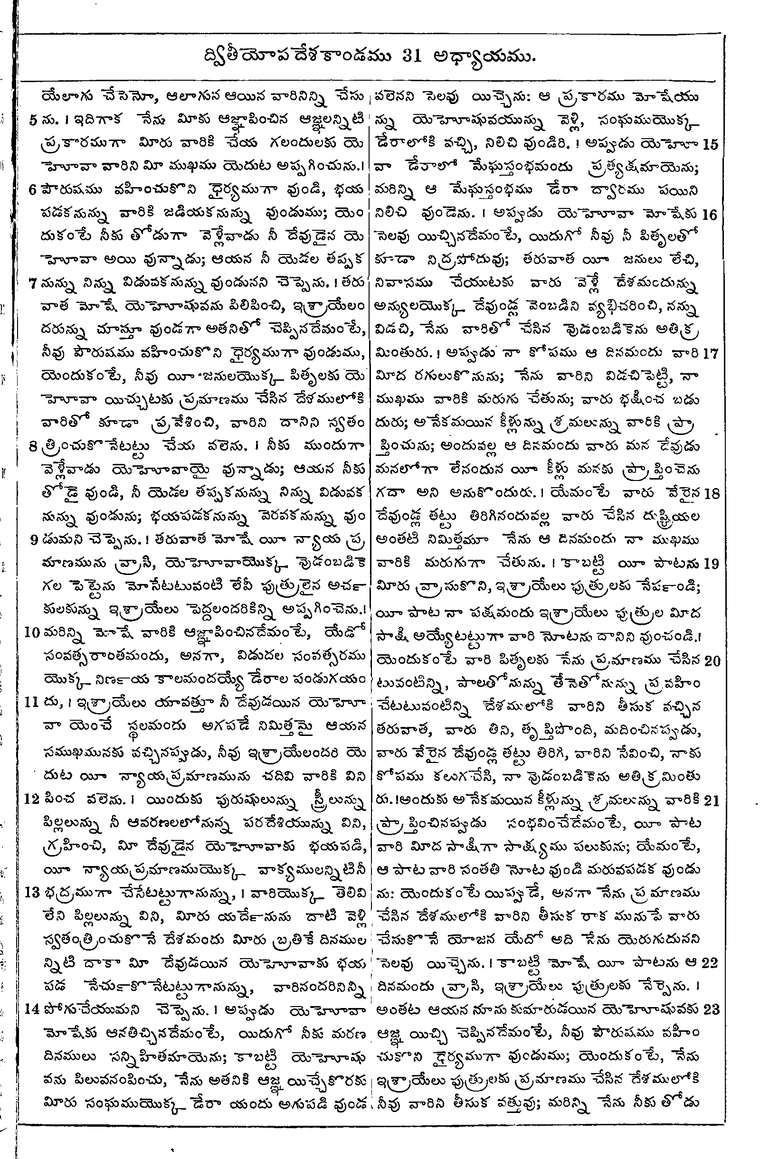 ద్వితీయోపదేశకాండము 31 అధ్యాయము.
యేలాగు చేసెనో, ఆలాగున ఆయన వారినిన్ని చేసు
5 ను. । ఇదిగాక నేను మీకు ఆజ్ఞాపించిన ఆజ్ఞలన్నిటి
ప్రకారముగా మీరు వారికి చేయ గలందులకు యె
హోవా వారిని మీ ముఖము యెదుట అప్పగించును.।
6 పౌరుషము వహించుకొని ధైర్యముగా వుండి, భయ
పడకనున్ను వారికి జడియకనున్ను వుండుము; యెం
దుకంటే నీకు తోడుగా వెళ్లేవాడు నీ దేవుడైన యె
హోవా అయి వున్నాడు; ఆయన నీ యెడల తప్పక
7 నున్ను నిన్ను విడువకనున్ను వుండునని చెప్పెను. । తరు
వాత మోషే యెహోషువను పిలిపించి, ఇశ్రాయేలం
దరున్ను చూస్తూ వుండగా అతనితో చెప్పినదేమంటే,
నీవు పౌరుషము వహించుకొని ధైర్యముగా వుండుము,
యెందుకంటే, నీవు యీ జనులయొక్క పితృలకు యె
హోవా యిచ్చుటకు ప్రమాణము చేసిన దేశములోకి
వారితో కూడా ప్రవేశించి, వారిని దానిని స్వతం
8 త్రించుకొనేటట్టు చేయ వలెను. । నీకు ముందుగా
వెళ్లేవాడు యెహోవాయై వున్నాడు; ఆయన నీకు
తోడై వుండి, నీ యెడల తప్పకనున్ను నిన్ను విడువక
నున్ను వుండును; భయపడకనున్ను వెరవకనున్ను వుం
9 డుమని చెప్పెను. । తరువాత మోషే యీ న్యాయ ప్ర
మాణమును వ్రాసి, యెహోవాయొక్క వుడంబడికె
గల పెట్టెను మోసేటటువంటి లేవీ పుత్రులైన అర్చ
కులకున్ను ఇశ్రాయేలు పెద్దలందరికిన్ని అప్పగించెను.।
10 మరిన్ని మోషే వారికి ఆజ్ఞాపించినదేమంటే, యేడో
సంవత్సరాంతమందు, అనగా, విడుదల సంవత్సరము
యొక్క నిర్ణయ కాలమందయ్యే డేరాల పండుగయం
11 దు, । ఇశ్రాయేలు యావత్తూ నీ దేవుడయిన యెహో
వా యెంచే స్థలమందు అగపడే నిమిత్తమై ఆయన
సముఖమునకు వచ్చినప్పుడు, నీవు ఇశ్రాయేలందరి యె
దుట యీ న్యాయప్రమాణమును చదివి వారికి విని
12 పించ వలెను. । యిందుకు పురుషులున్ను స్త్రీలున్ను
పిల్లలున్ను నీ ఆవరణలలోనున్న పరదేశియున్ను విని,
గ్రహించి, మీ దేవుడైన యెహోవాకు భయపడి,
యీ న్యాయప్రమాణముయొక్క వాక్యములన్నిటినీ
13 భద్రముగా చేసేటట్టుగానున్ను, । వారియొక్క తెలివి
లేని పిల్లలున్ను విని, మీరు యర్దేనును దాటి వెళ్లి
స్వతంత్రించుకొనే దేశమందు మీరు బ్రతికే దినముల
న్నిటి దాకా మీ దేవుడయిన యెహోవాకు భయ
పడ నేర్చుకొనేటట్టుగానున్ను, వారినందరినిన్ని
14 పోగుచేయుమని చెప్పెను. । అప్పుడు యెహోవా
మోషేకు ఆనతిచ్చినదేమంటే, యిదుగో నీకు మరణ
దినములు సన్నిహితమాయెను; కాబట్టి యెహోషు
వను పిలువనంపించు, నేను అతనికి ఆజ్ఞ యిచ్చేకొరకు
మీరు సంఘముయొక్క డేరా యందు అగుపడి వుండ
వలెనని సెలవు యిచ్చెను: ఆ ప్రకారము మోషేయు
న్ను యెహోషువయున్ను వెళ్లి, సంఘముయొక్క
డేరాలోకి వచ్చి, నిలిచి వుండిరి. । అప్పుడు యెహో 15
వా డేరాలో మేఘస్తంభమందు ప్రత్యక్షమాయెను;
మరిన్ని ఆ మేఘస్తంభము డేరా ద్వారము పయిని
నిలిచి వుండెను. । అప్పుడు యెహోవా మోషేకు 16
సెలవు యిచ్చినదేమంటే, యిదుగో నీవు నీ పితృలతో
కూడా నిద్రపోదువు; తరువాత యీ జనులు లేచి,
నివాసము చేయుటకు వారు వెళ్లే దేశమందున్న
అన్యులయొక్క దేవుండ్ల వెంబడిని వ్యభిచరించి, నన్ను
విడచి, నేను వారితో చేసిన వుడంబడికెను అతిక్ర
మింతురు. । అప్పుడు నా కోపము ఆ దినమందు వారి 17
మీద రగులుకొనును; నేను వారిని విడచిపెట్టి, నా
ముఖము వారికి మరుగు చేతును; వారు భక్షించ బడు
దురు; అనేకమయిన కీళ్లున్ను శ్రమలున్ను వారికి ప్రా
ప్తించును; అందువల్ల ఆ దినమందు వారు మన దేవుడు
మనలోగా లేనందున యీ కీళ్లు మనకు ప్రాప్తించెను
గదా అని అనుకొందురు. । యేమంటే వారు వేరైన 18
దేవుండ్ల తట్టు తిరిగినందువల్ల వారు చేసిన దుష్క్రియల
అంతటి నిమిత్తమూ నేను ఆ దినమందు నా ముఖము
వారికి మరుగుగా చేతును. । కాబట్టి యీ పాటను 19
మీరు వ్రాసుకొని, ఇశ్రాయేలు పుత్రులకు నేర్పండి;
యీ పాట నా పక్షమందు ఇశ్రాయేలు పుత్రుల మీద
సాక్షి అయ్యేటట్టుగా వారి నోటను దానిని వుంచండి.।
యెందుకంటే వారి పితృలకు నేను ప్రమాణము చేసిన 20
టువంటిన్ని, పాలతోనున్ను తేనెతోనున్ను ప్రవహిం
చేటటువంటిన్ని దేశములోకి వారిని తీసుక వచ్చిన
తరువాత, వారు తిని, తృప్తిపొంది, మదించినప్పుడు,
వారు వేరైన దేవుండ్ల తట్టు తిరిగి, వారిని సేవించి, నాకు
కోపము కలుగచేసి, నా వుడంబడికెను అతిక్రమింతు
రు.।అందుకు అనేకమయిన కీళ్లున్ను శ్రమలున్ను వారికి 21
ప్రాప్తించినప్పుడు సంభవించేదేమంటే, యీ పాట
వారి మీద సాక్షిగా సాక్ష్యము పలుకును; యేమంటే,
ఆ పాట వారి సంతతి నోట వుండి మరువపడక వుండు
ను: యెందుకంటే యిప్పుడే, అనగా నేను ప్రమాణము
చేసిన దేశములోకి వారిని తీసుక రాక మునుపే వారు
చేసుకొనే యోజన యేదో అది నేను యెరుగుదునని
సెలవు యిచ్చెను. । కాబట్టి మోషే యీ పాటను ఆ 22
దినమందు వ్రాసి, ఇశ్రాయేలు పుత్రులకు నేర్పెను. ।
అంతట ఆయన నూను కుమారుడయిన యెహోషువకు 23
ఆజ్ఞ యిచ్చి చెప్పినదేమంటే, నీవు పౌరుషము వహిం
చుకొని ధైర్యముగా వుండుము; యెందుకంటే, నేను
ఇశ్రాయేలు పుత్రులకు ప్రమాణము చేసిన దేశములోకి
నీవు వారిని తీసుక వత్తువు; మరిన్ని నేను నీకు తోడు